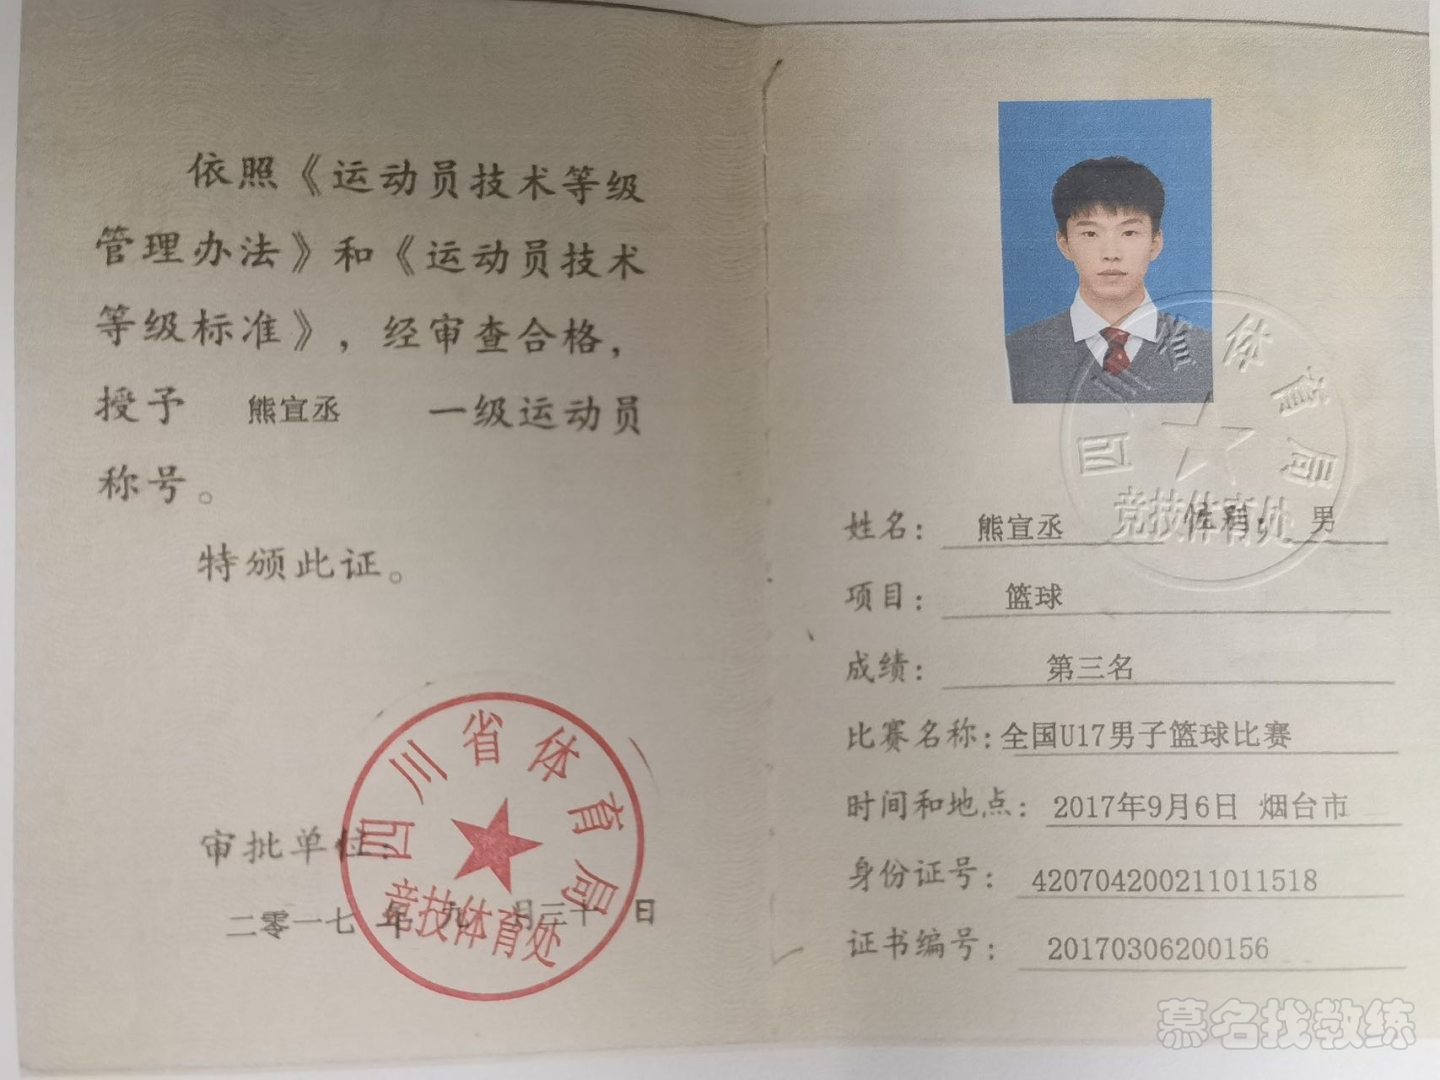 依照《运动员技术等级
管理办法》和《运动员技术
等级标准》，经审查合格，
授予 熊宣丞 一级运动员
称号。
特颁此证。
审批单位：
四川省体育局
竞技体育处
二零一七 年 九 月三十 日
四川省体育局
竞技体育处
姓名： 熊宣丞 性别： 男
项目： 篮球
成绩： 第三名
比赛名称：全国U17男子篮球比赛
时间和地点： 2017年9月6日 烟台市
身份证号： 420704200211011518
证书编号： 20170306200156
慕名找教练